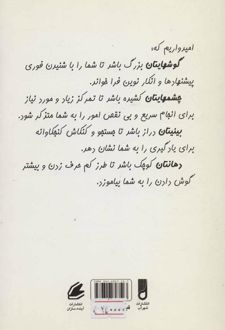 امیدواریم که:
گوشهایتان بزرگ باشد تا شما را با شنیدن فوری
پیشنهادها و افکار نوین فرا خواند.
چشمهایتان کشیده باشد تا تمرکز زیاد و مورد نیاز
برای انجام سریع و بی نقص امور را به شما متذکر شود.
بینیتان دراز باشد تا جستجو و کنکاش کنجکاوانه
برای یادگیری را به شما نشان دهد.
دهانتان کوچک باشد تا طرز کم حرف زدن و بیشتر
گوش دادن را به شما بیاموزد.
انتشارات
آینده سازان
انتشارات
شهرآب